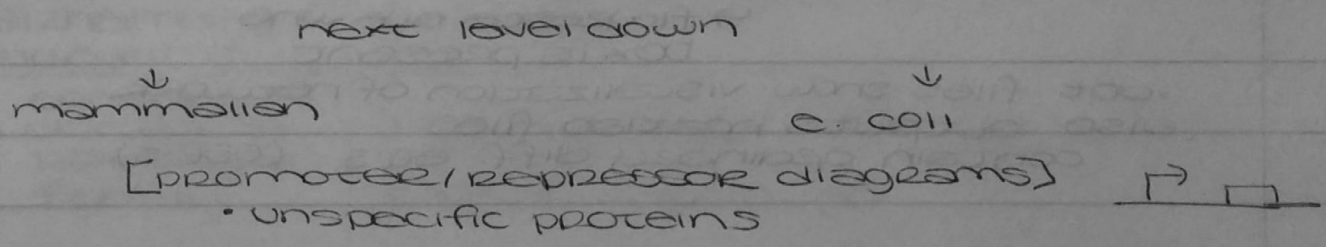 next level down
↓ ↓
mammalian e. coli
[promoter/repressor diagrams]
• unspecific proteins